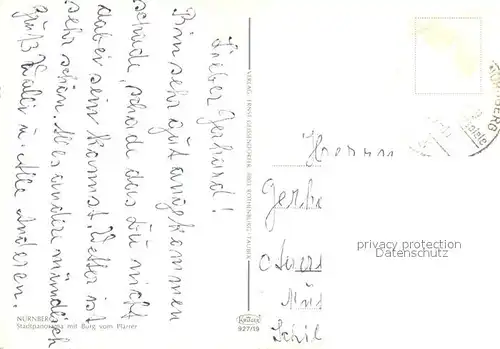 Lieber Gerhard!
Bin sehr gut angekommen
schade, schade das Du nicht
dabei sein kannst. Wetter ist
sehr schön. Alles andere mündlich
Grüß Walli u. Alle Anderen.
NÜRNBERG
Stadtpanorama mit Burg vom Plärrer
VERLAG ERNST GEISSENDÖRFER, 8803 ROTHENBURG / TAUBER
KRÜGER
927/19
Herrn
Gerh
privacy protection
Datenschutz
Schil